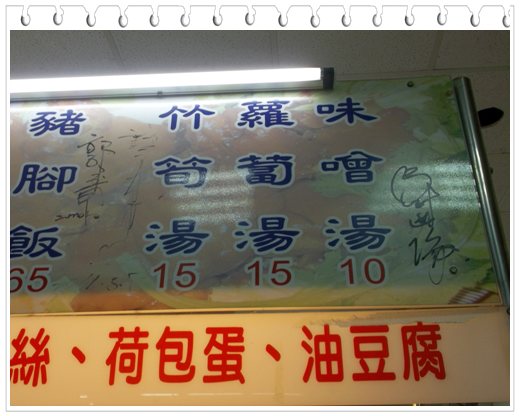 味噌湯 10
蘿蔔湯 15
竹筍湯 15
豬腳飯 65
絲、荷包蛋、油豆腐